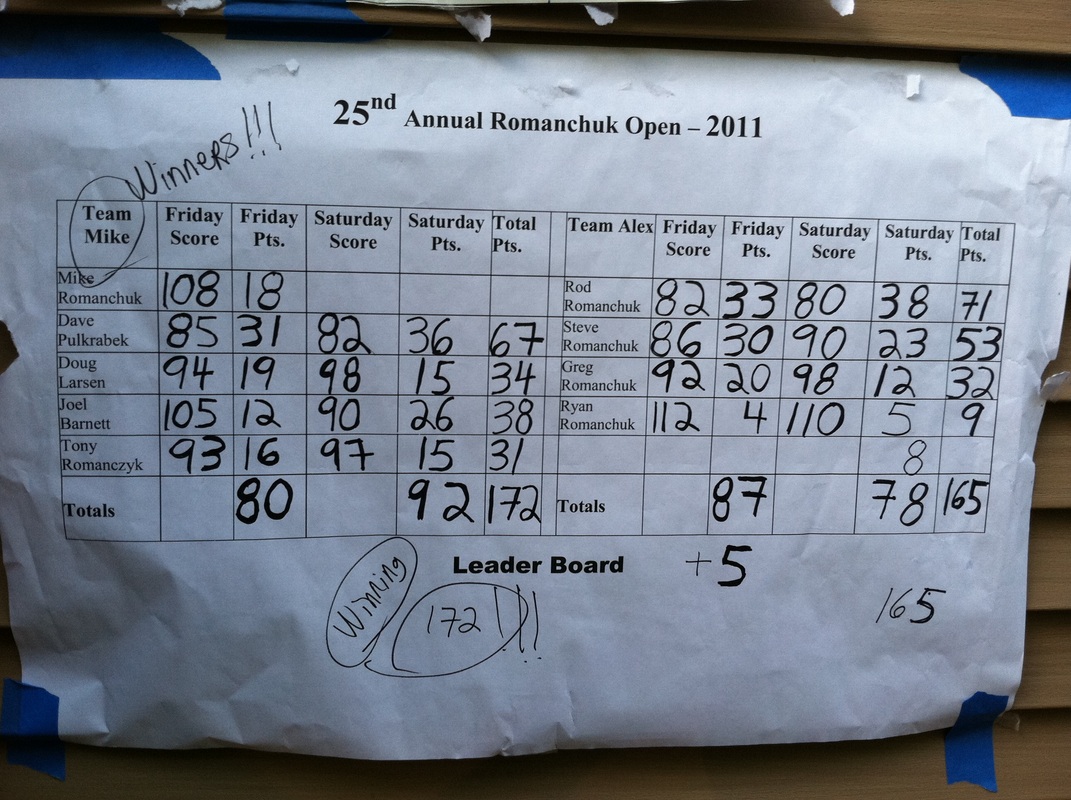 25nd Annual Romanchuk Open – 2011
Winners!!!
Team Mike Friday Score Friday Pts. Saturday Score Saturday Pts. Total Pts. Team Alex Friday Score Friday Pts. Saturday Score Saturday Pts. Total Pts.
Mike Romanchuk 108 18 Rod Romanchuk 82 33 80 38 71
Dave Pulkrabek 85 31 82 36 67 Steve Romanchuk 86 30 90 23 53
Doug Larsen 94 19 98 15 34 Greg Romanchuk 92 20 98 12 32
Joel Barnett 105 12 90 26 38 Ryan Romanchuk 112 4 110 5 9
Tony Romanczyk 93 16 97 15 31 8
Totals 80 92 172 Totals 87 78 165
Leader Board +5
Winning 172 !!! 165